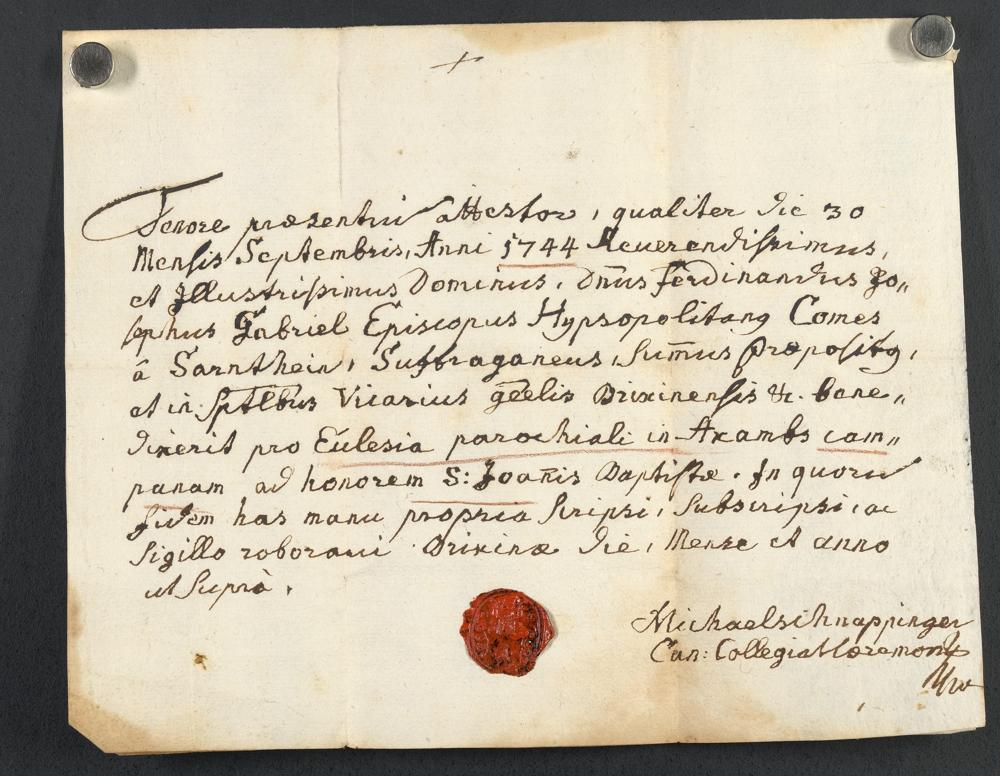 Tenore præsentiu attestor, qualiter die 30
Mensis Septembris, Anni 1744 Reuerendissimus,
et Jllustrissimus Dominus, Dn̄us Ferdinandus Jo„
sephus Gabriel Episcopus Hypsopolitang Comes
á Sarnthein, Suffraganeus, Sum̄us Præpositg,
et in Sp̄tlbus Vicarius gēelis Brixinensis &c. bene„
dixerit pro Eclesia parochiali in Axambs cam„
panam ad honorem S: Joan̄is Baptistæ. Jn quoru
fidem has manu propria scripsi, subscripsi, ac
sigillo roboraui Brixinæ die, Mense et anno
ut suprà.
Michael Schnappinger
Can: Collegiat Cæremony